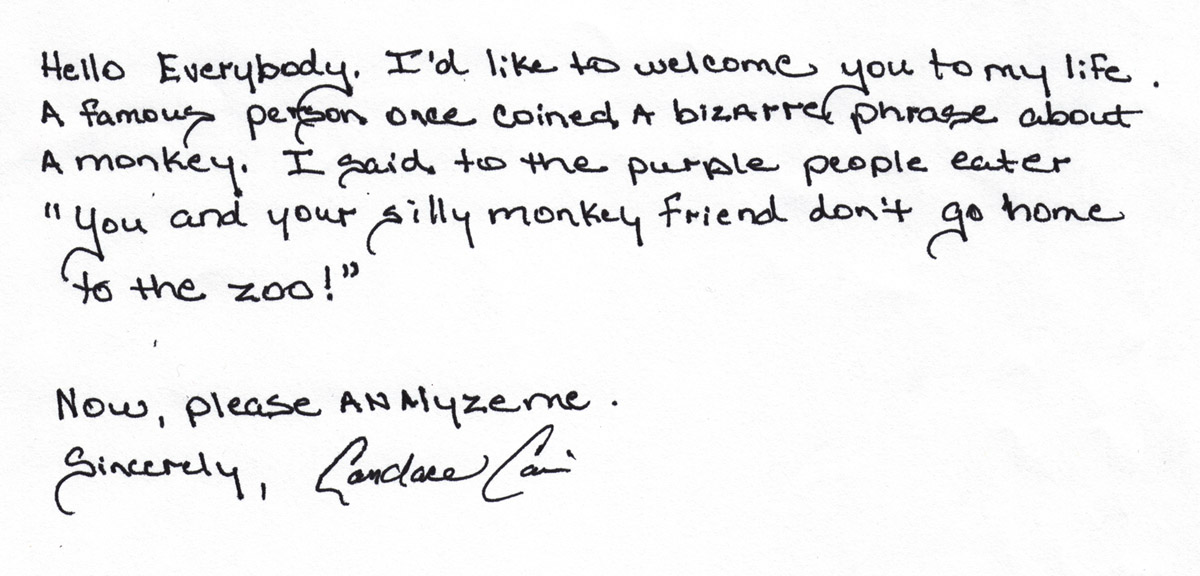 Hello Everybody. I'd like to welcome you to my life.
A famous person once coined A bizArre phrase about
A monkey. I said to the purple people eater
"You and your silly monkey friend don't go home
to the zoo!"
Now, please ANAlyze me.
Sincerely, Candace